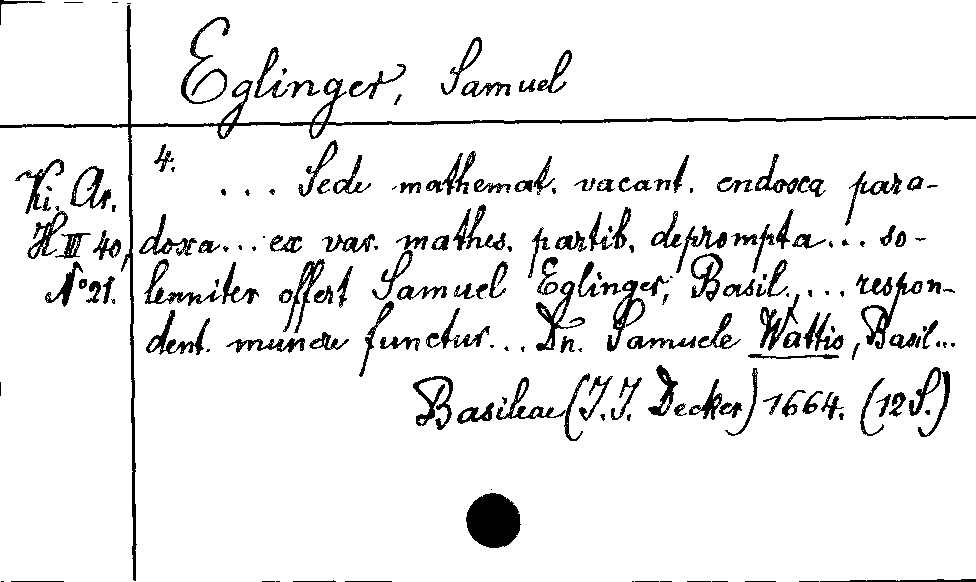 Eglinger, Samuel
4.
Ki. Ar.
H III 40,
No 21.
... Sede mathemat. vacant. endoxa para-
doxa... ex var. mathes. partib. deprompta... so-
lenniter offert Samuel Eglinger, Basil., ... respon-
dent. munere functur... Dn. Samuele Wattis, Basil...
Basileae (J.J. Decker) 1664. (12 S.)